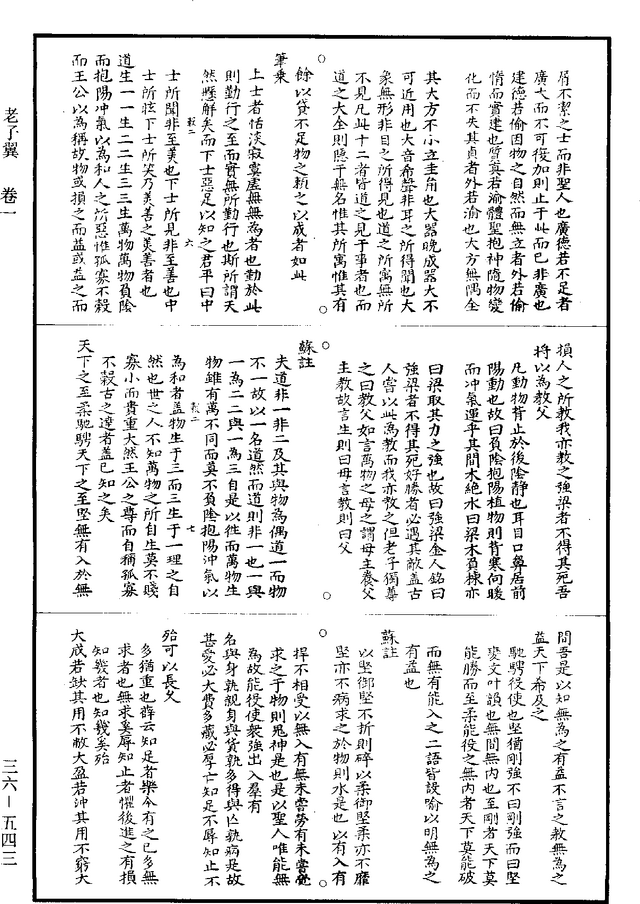 老子翼　卷一
三六－五四三
屑不潔之士而非聖人也廣德若不足者
廣大而不可復加則止于此而已非廣也
建德若偷因物之自然而無立者外若偷
惰而實建也質真若渝體聖抱神隨物變
化而不失其貞者外若渝也大方無隅全
其大方不小立圭角也大器晚成器大不
可近用也大音希聲非耳之所得聞也大
象無形非目之所得見也道之所寓無所
不見凡此十二者皆道之見于事者也而
道之大全則隱于無名惟其所寓惟其有
餘以貸不足物之賴之以成者如此
筆乘
上士者恬淡寂寞虛無無為者也勤於此
則勤行之至而實無所勤行也斯所謂天
然懸解矣而下士惡足以知之君平曰中
士所聞非至美也下士所見非至善也中
士所眩下士所笑乃美善之美善者也
道生一一生二二生三三生萬物萬物負陰
而抱陽冲氣以為和人之所惡惟孤寡不穀
而王公以為稱故物或損之而益或益之而
損人之所教我亦教之強梁者不得其死吾
將以為教父
凡動物背止於後陰静也耳目口鼻居前
陽動也故曰負陰抱陽植物則背寒向暖
而冲氣運乎其間木絶水曰梁木負棟亦
曰梁取其力之強也故曰強梁金人銘曰
強梁者不得其死好勝者必遇其敵盖古
人嘗以此為教而我亦教之但老子獨尊
之曰教父如言萬物之母之謂母主養父
主教故言生則曰母言教則曰父
蘇註
夫道非一非二及其與物為偶道一而物
不一故以一名道然而道則非一也一與
一為二二與一為三自是以往而萬物生
物雖有萬不同而莫不負陰抱陽冲氣以
為和者盖物生于三而三生于一理之自
然也世之人不知萬物之所自生莫不賤
寡小而貴重大然王公之尊而自稱孤寡
不穀古之達者盖已知之矣
天下之至柔馳騁天下之至堅無有入於無
間吾是以知無為之有益不言之教無為之
益天下希及之
馳騁役使也堅猶剛強不曰剛強而曰堅
變文叶韻也無間無内也至剛者天下莫
能勝而至柔能役之無内者天下莫能破
而無有能入之二語皆設喻以明無為之
有益也
蘇註
以堅御堅不折則碎以柔御堅柔亦不靡
堅亦不病求之於物則水是也以有入有
捍不相受以無入有無未嘗勞有未嘗覺
求之于物則鬼神是也是以聖人唯能無
為故能役使衆強出入羣有
名與身孰親身與貨孰多得與亡孰病是故
甚愛必大費多藏必厚亡知足不辱知止不
殆可以長久
多猶重也薛云知足者樂今有之已多無
求者也無求奚辱知止者懼後進之有損
知幾者也知幾奚殆
大成若缺其用不敝大盈若沖其用不窮大